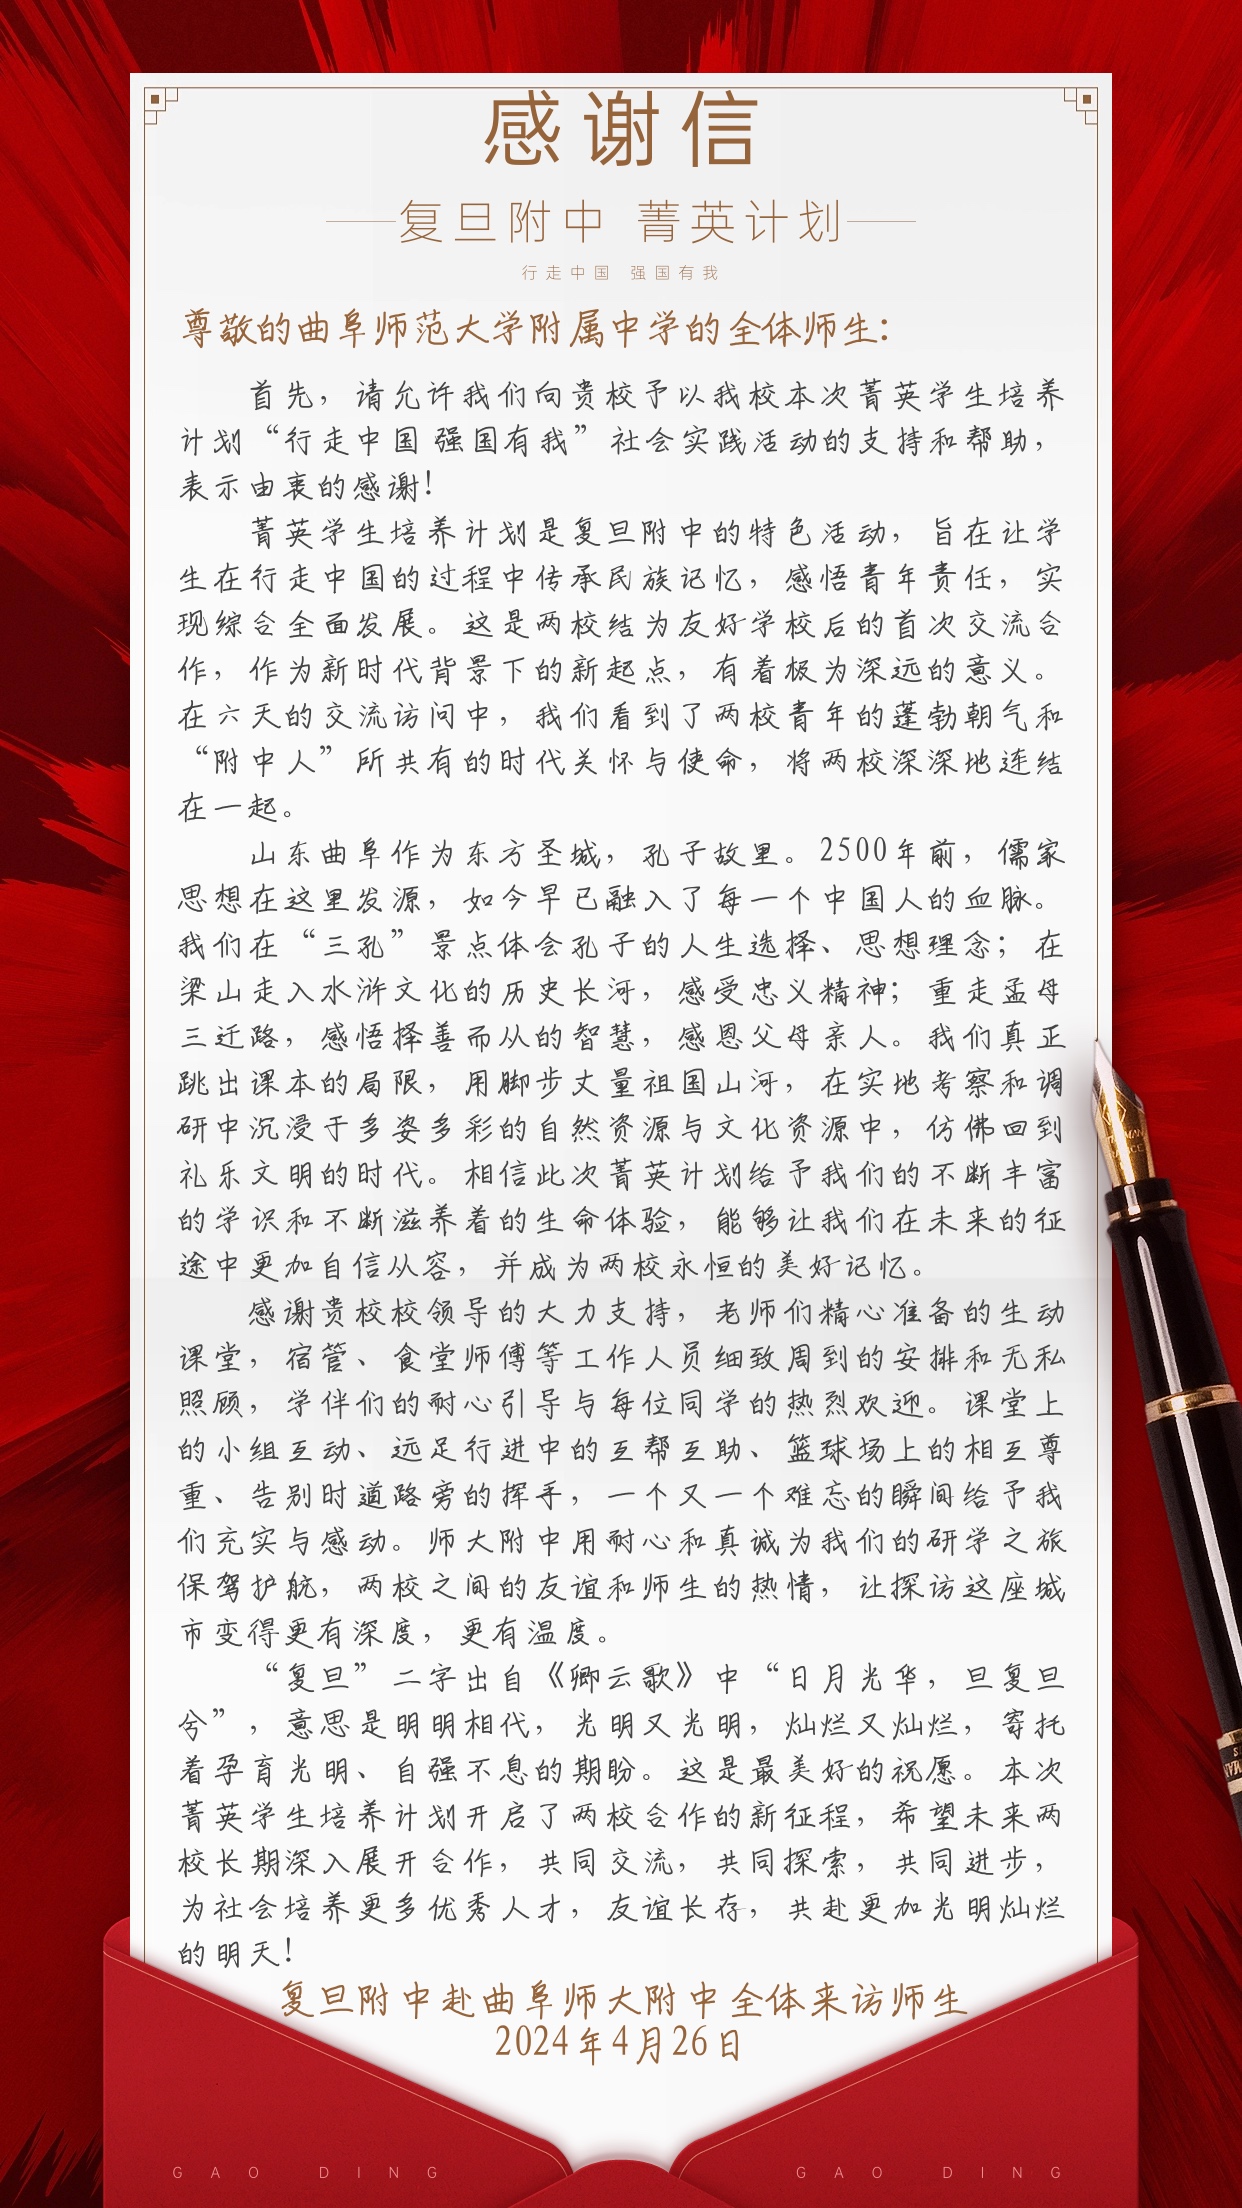 感谢信
复旦附中 菁英计划
行走中国 强国有我
尊敬的曲阜师范大学附属中学的全体师生：
首先，请允许我们向贵校予以我校本次菁英学生培养
计划“行走中国 强国有我”社会实践活动的支持和帮助，
表示由衷的感谢！
菁英学生培养计划是复旦附中的特色活动，旨在让学
生在行走中国的过程中传承民族记忆，感悟青年责任，实
现综合全面发展。这是两校结为友好学校后的首次交流合
作，作为新时代背景下的新起点，有着极为深远的意义。
在六天的交流访问中，我们看到了两校青年的蓬勃朝气和
“附中人”所共有的时代关怀与使命，将两校深深地连结
在一起。
山东曲阜作为东方圣城，孔子故里。2500年前，儒家
思想在这里发源，如今早已融入了每一个中国人的血脉。
我们在“三孔”景点体会孔子的人生选择、思想理念；在
梁山走入水浒文化的历史长河，感受忠义精神；重走孟母
三迁路，感悟择善而从的智慧，感恩父母亲人。我们真正
跳出课本的局限，用脚步丈量祖国山河，在实地考察和调
研中沉浸于多姿多彩的自然资源与文化资源中，仿佛回到
礼乐文明的时代。相信此次菁英计划给予我们的不断丰富
的学识和不断滋养着的生命体验，能够让我们在未来的征
途中更加自信从容，并成为两校永恒的美好记忆。
感谢贵校校领导的大力支持，老师们精心准备的生动
课堂，宿管、食堂师傅等工作人员细致周到的安排和无私
照顾，学伴们的耐心引导与每位同学的热烈欢迎。课堂上
的小组互动、远足行进中的互帮互助、篮球场上的相互尊
重、告别时道路旁的挥手，一个又一个难忘的瞬间给予我
们充实与感动。师大附中用耐心和真诚为我们的研学之旅
保驾护航，两校之间的友谊和师生的热情，让探访这座城
市变得更有深度，更有温度。
“复旦”二字出自《卿云歌》中“日月光华，旦复旦
兮”，意思是明明相代，光明又光明，灿烂又灿烂，寄托
着孕育光明、自强不息的期盼。这是最美好的祝愿。本次
菁英学生培养计划开启了两校合作的新征程，希望未来两
校长期深入展开合作，共同交流，共同探索，共同进步，
为社会培养更多优秀人才，友谊长存，共赴更加光明灿烂
的明天！
复旦附中赴曲阜师大附中全体来访师生
2024年4月26日
GAO DING GAO DING